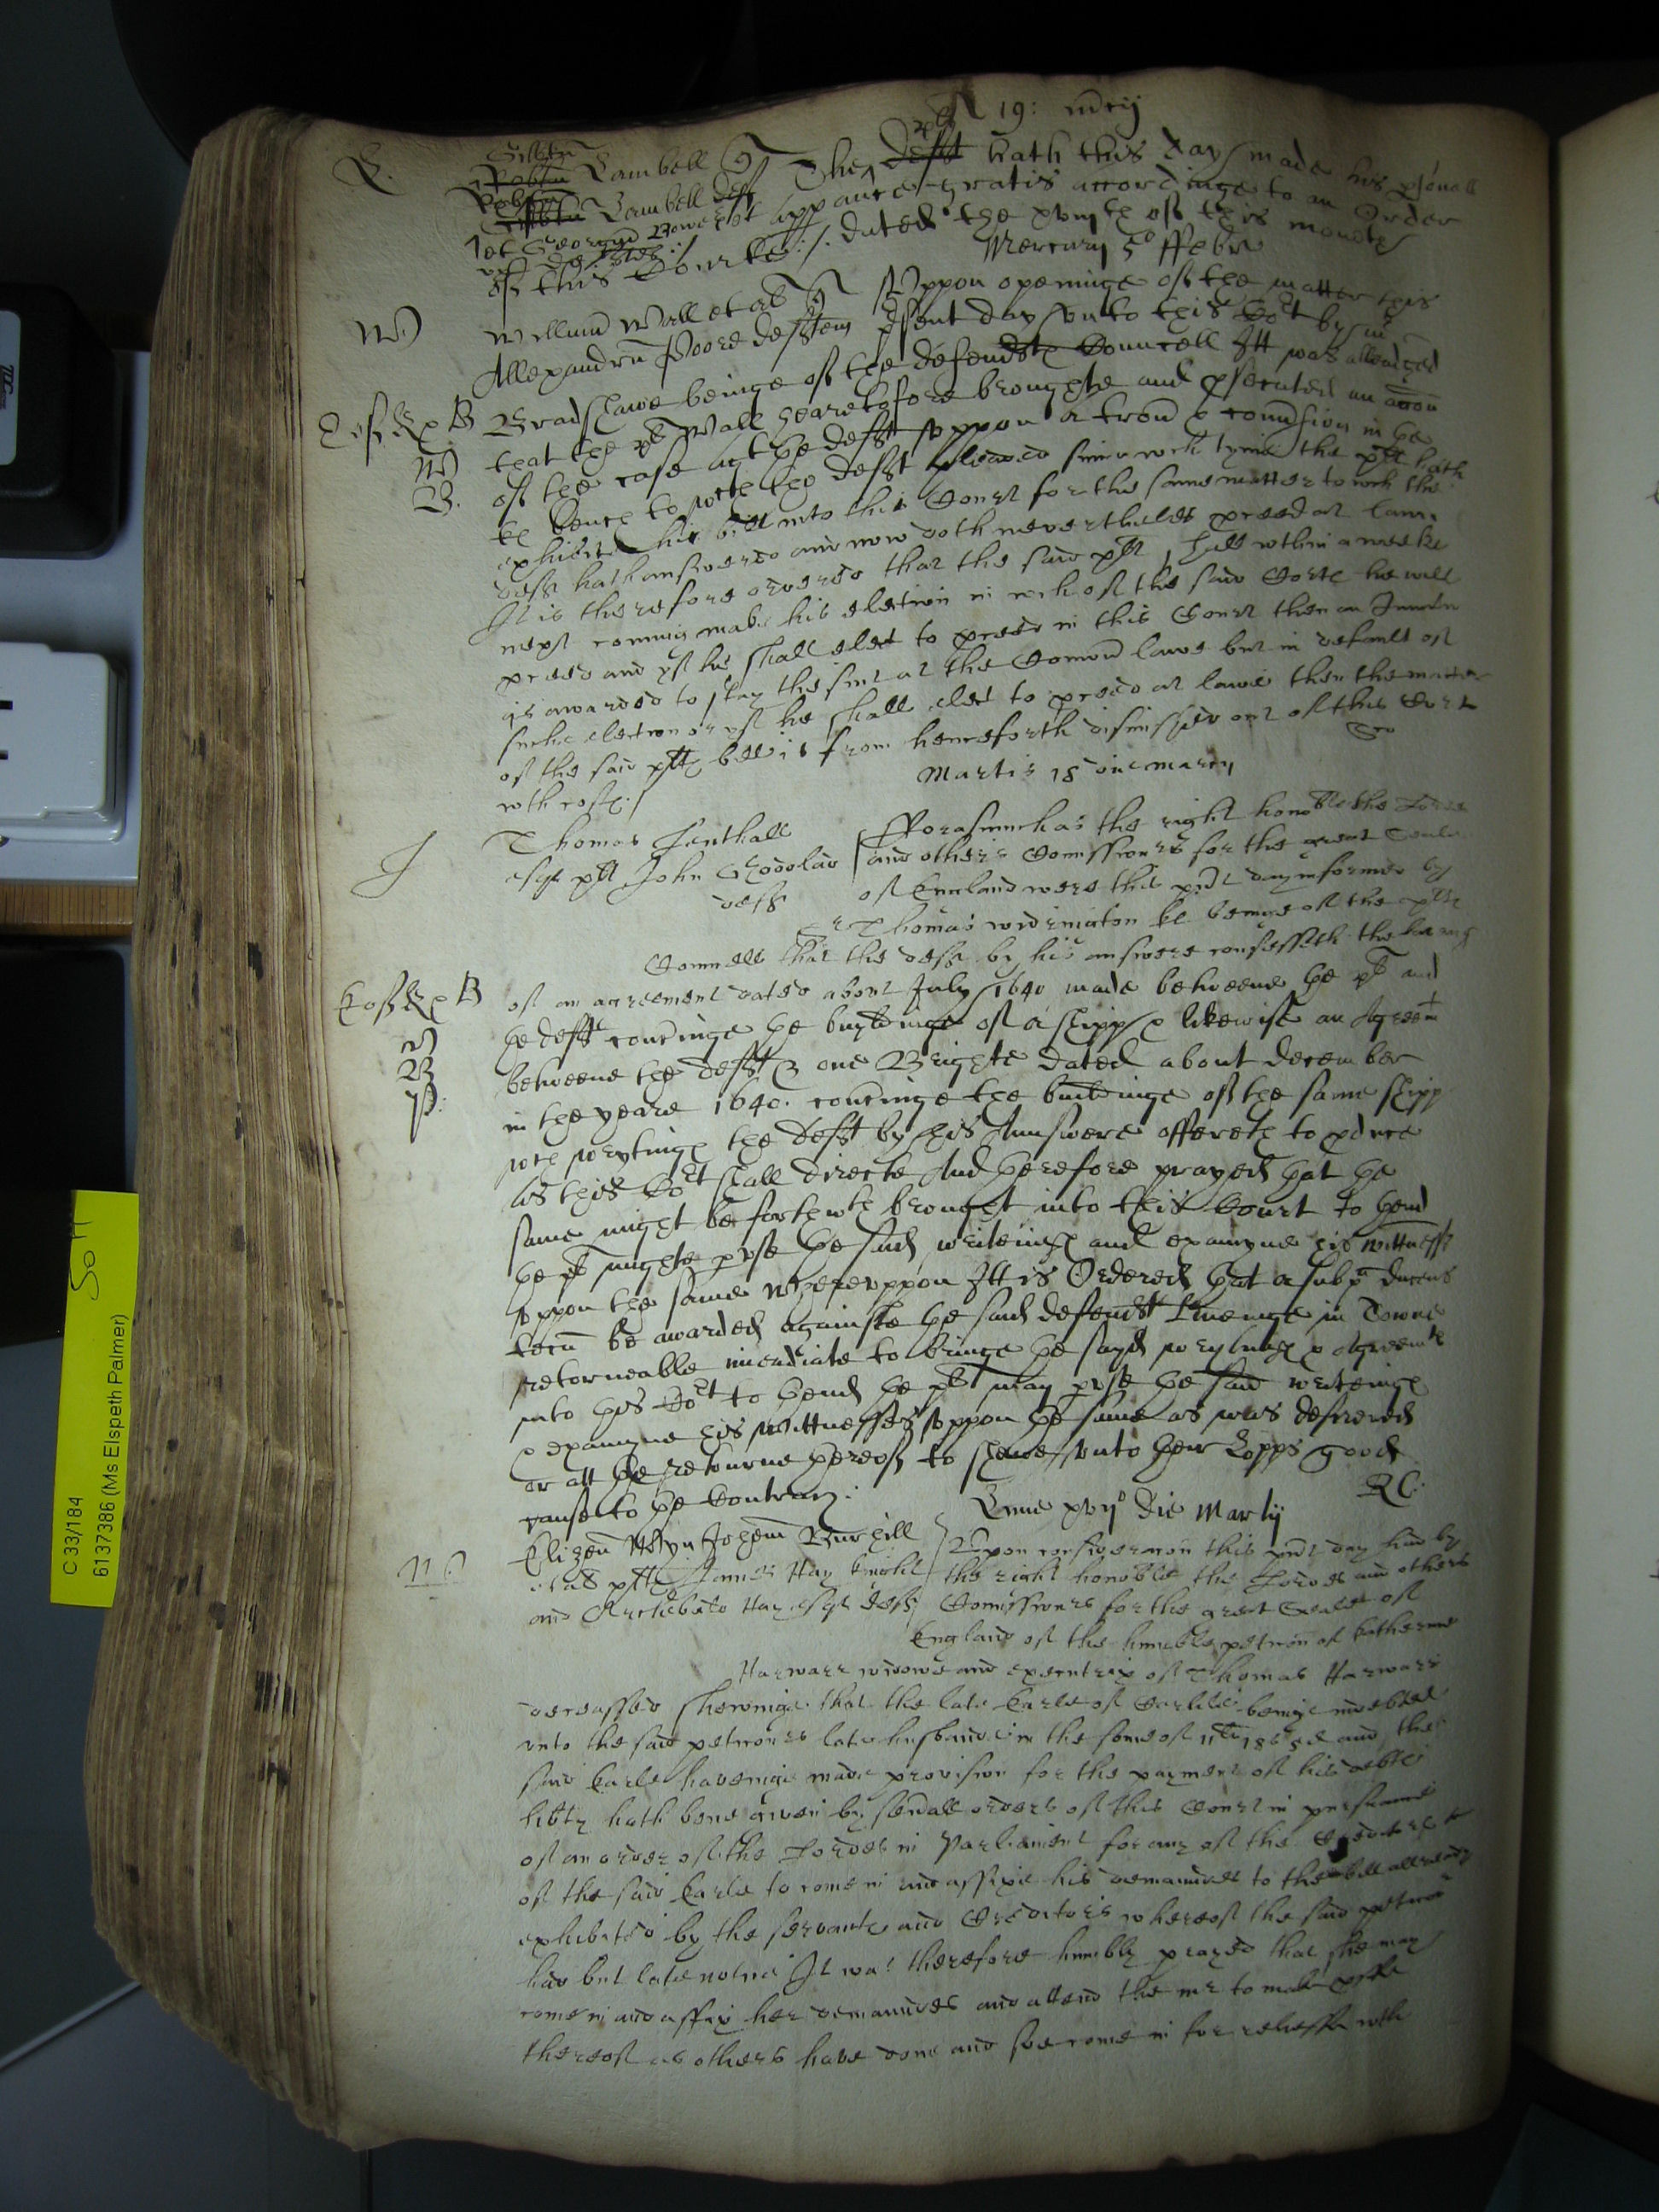 19: mrcij
Lambell The deft plt hath this day made his psonall
Lambell deft appance gratis accordinge to an Order
of this Courte dated the xviijth of this moneth
Mercurij 5° ffebr
W
Willm Wall et al Uppon openinge of the matter this
Allexandru Poore defftem psent day unto this Cort by mr
Bradshawe beinge of the defendts Councell Itt was alleadged
that the plt Wall heretofore broughte and psecuted an accon
of the case agt the defft uppon a trou & convsion in the
to wch the defft pleaded since wch tyme the plt hath
exhibited his bill into this Court for the same matter to wch the
deft hath answered and now doth neverthelesse pceed at lawe
It is therefore ordered that the said plt shall wthin a weeke
next comming make his election in wch of the said Corts he will
proceed and yf he shall elect to proceed in this Court then an Iniunction
is awarded to stay the suit at the Comon lawe but in default of
suche election or yf he shall elect to proceed at lawe then the matter
of the said plts bill is from henceforth dismissed out of this Cort
wth costs
Martis 18 die marcij
Thomas Lenthall fforasmuch as the right honoble the Lords
esqr plt John Goodlad and others Comissioners for the great Seale
deft of England were this psent day informed by
Sr Thomas Widrington kt beinge of the plts
Councell that the deft by his answere confesseth the having
of an agreement dated about July 1640 made betweene the plt and
the defft concerninge the buyldinge of a shipp & likewise an Agreemt
betweene the defft & one Brighte dated about December
in the yeare 1640. concerninge the buildinge of the same shipp
wch wrytings the defft by his Aunswere offereth to pduce
as this Cort shall directe And therefore prayed that the
same might be forthwth brought into this Court to thend
the plt mighte pvse the said writeings and examyne his wittnesses
uppon the same whereuppon Itt is Ordered that a subpa ducens
tecu be awarded againste the said defendt Liueinge in Towne
retorneable imediate to bringe the sayd wrytings & Agreemts
into this Cort to thend the plt may pvse the said writeings
& examyne his wittnesses uppon the same as was desiered
or att the retourne thereof to shewe unto their Lopps good
cause to the Contrary:
RC:
Lune xvij° die Marcij
Elizeu Wyn Johem Burghill Upon consideracon this psent day had by
et al plts James Hay knight the right honoble the Lords and others
and Archebald Hay esqr defts Comissioners for the great Seale of
England of the humble peticon of Katherine
Harwarr widowe and executrix of Thomas Harwarr
deceassed shewinge that the late Earle of Carlile beinge indebted
unto the said peticoners late husband in the some of and the
said Earle haveinge made provision for the payment of his debts
libty hath bene given by severall orders of this Court in pursuance
of an order of the Lordes in Parliament for any of the Creditors
of the said Earle to come in and affixe his demaundes to the bill allready
exhibited by the servants and Creditors whereof the said peticoner
had but late notice It was therefore humbly prayed that she may
come in and affix her demaundes and attend the mr to make proofe
thereof as others have done and soe come in for releiffe wth
C 33/184
6137386 (Ms Elspeth Palmer)